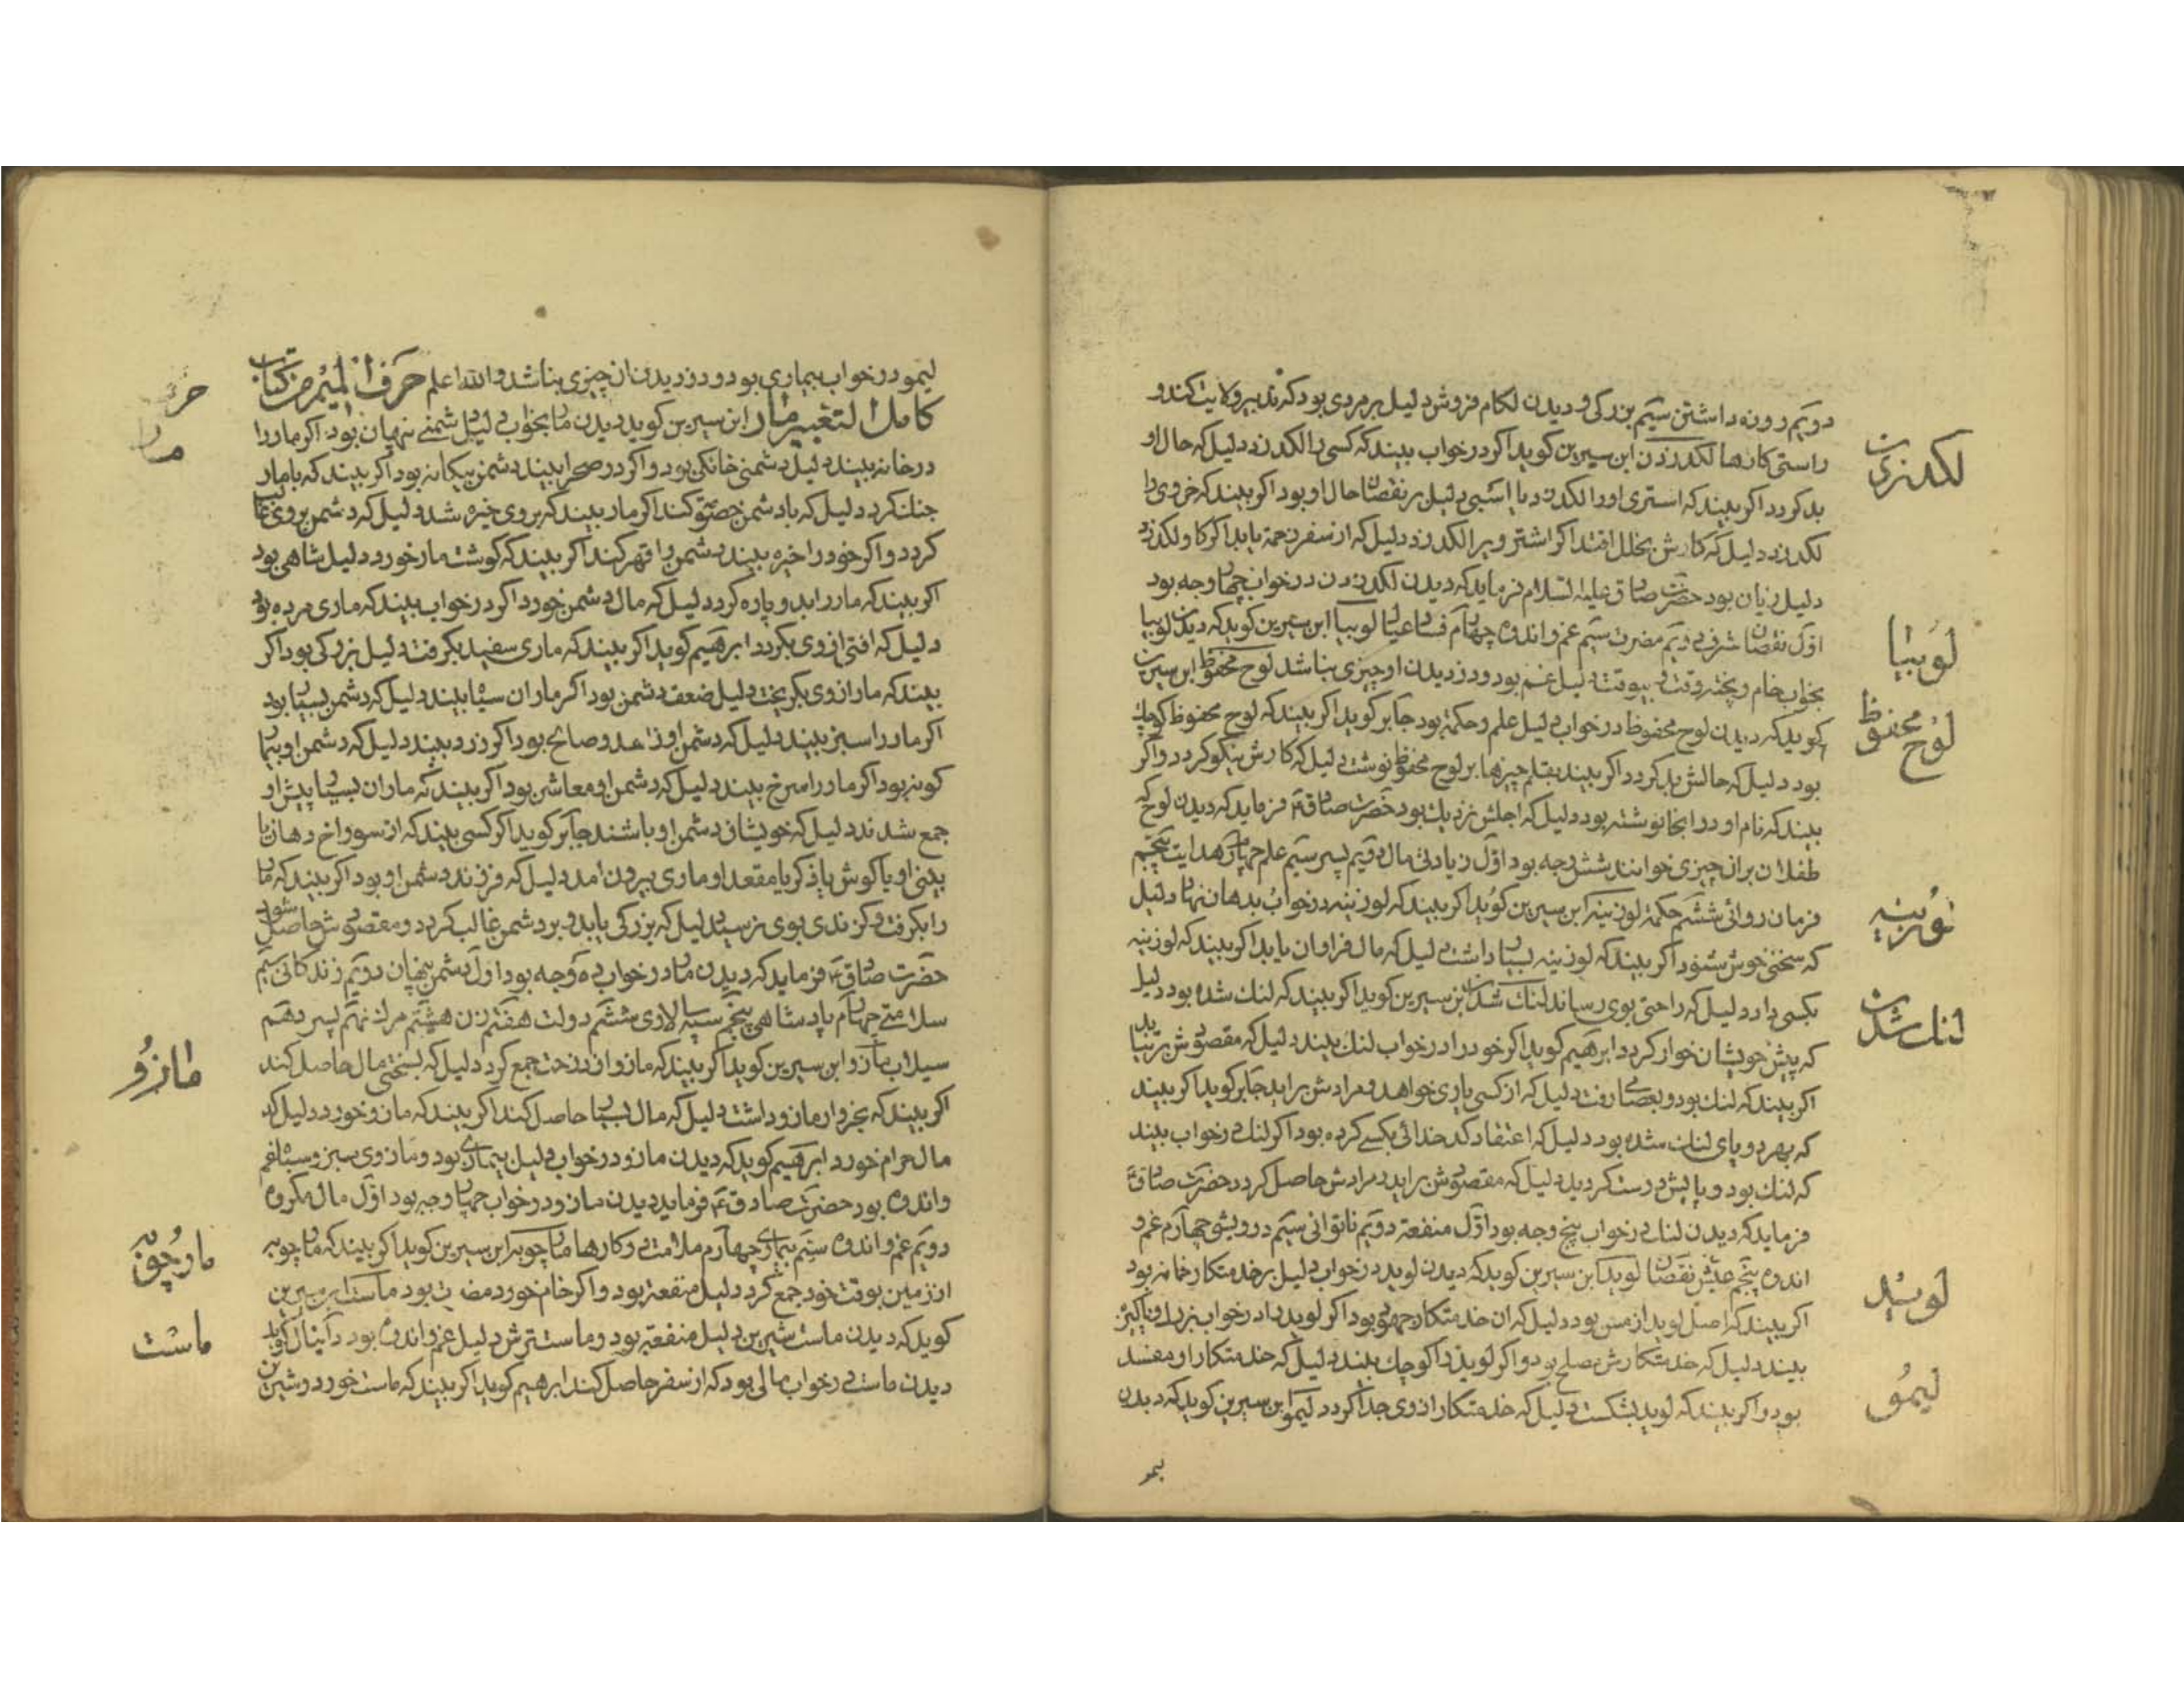 دویم روزه داشتن سیم بزرکی و دیدن لکام فروش دلیل بر مردی بود که تدبیر ولایت کند و
راستی کارها لکد زدن ابن سیرین کوید اکر در خواب بیند که کسی را لکد زد دلیل که حال او
بد کردد اکر بیند که استری او را لکد زد یا اسبی دلیل بر نقصان حال او بود اکر بیند که خر وی را
لکد زد دلیل که کارش بخلل افتد اکر اشتر ویرا لکد زد دلیل که از سفر زحمة یابد اکر کاو لکد زد
دلیل زیان بود حضرت صادق علیه السلام فرماید که دیدن لکد زدن در خواب چهار وجه بود
اول نقصان شرف دویم مضرت سیم غم و اندوه چهارم فساد عیال لوبیا ابن سیرین کوید که دیدن لوبیا
بخواب خام و پخته وقت و بیوقت دلیل غم بود و دزدیدن او چیزی بناشد لوح محفوظ ابن سیرین
کوید که دیدن لوح محفوظ در خواب دلیل علم و حکمة بود جابر کوید اکر بیند که لوح محفوظ کوچك
بود دلیل که حالش بد کردد اکر بیند بقلم چیزها بر لوح محفوظ نوشت دلیل که کارش نیکو کردد و اکر
بیند که نام او در انجا نوشته بود دلیل که اجلش نزدیك بود حضرت صادق فرماید که دیدن لوح که
طفلان بران چیزی خوانند شش وجه بود اول زیادتی مال دویم پسر سیم علم چهارم هدایت پنجم
فرمان روائی ششم حکمة لوزینه ابن سیرین کوید اکر بیند که لوزینه در خواب بدهان نهاد دلیل
که سخنی خوش شنود اکر بیند که لوزینه بسیار داشت دلیل که مال فراوان یابد اکر بیند که لوزینه
بکسی داد دلیل که راحتی بوی رساند لنك شدن ابن سیرین کوید اکر بیند که لنك شده بود دلیل
که پیش خویشان خوار کردد ابرهیم کوید اکر خود را در خواب لنك بیند دلیل که مقصودش بر نیاید
اکر بیند که لنك بود و بعصا رفت دلیل که از کسی یاری خواهد و مرادش براید جابر کوید اکر بیند
که بهر دو پای لنك شده بود دلیل که اعتقاد کدخدائی بکسی کرده بود اکر لنك در خواب بیند
که لنك بود و پایش درست کردید دلیل که مقصودش براید و مرادش حاصل کردد حضرت صادق
فرماید که دیدن لنك در خواب پنج وجه بود اول منفعة دویم ناتوانی سیم درویشی چهارم غم و
اندوه پنجم عیش نقصان لوید ابن سیرین کوید که دیدن لوید در خواب دلیل بر خدمتکار خانه بود
اکر بیند که اصل لوید از مس بود دلیل که ان خدمتکار جهود بود اکر لوید را در خواب بزرك و پاکیزه
بیند دلیل که خدمتکارش مصلح بود و اکر لوید را کوچك بیند دلیل که خدمتکار او مفسد
بود و اکر بیند که لوید بشکست دلیل که خدمتکار از وی جدا کردد لیمو ابن سیرین کوید که دیدن
لیمو
لکد زدن
لوبیا
لوح محفوظ
لوزینه
لنك شدن
لوید
لیمو
لیمو در خواب بیماری بود و دزدیدن ان چیزی بناشد والله اعلم حرف المیم من کتاب
کامل التعبیر مار ابن سیرین کوید دیدن مار بخواب دلیل دشمنی پنهان بود اکر مار را
در خانه بیند دلیل دشمنی خانکی بود و اکر در صحرا بیند دشمن بیکانه بود اکر بیند که با مار
جنك کرد دلیل که با دشمن خصومت کند اکر مار بیند که بر وی خیره شد دلیل که دشمن بر وی غالب
کردد و اکر خود را خیره بیند دشمن را قهر کند اکر بیند که کوشت مار خورد دلیل شاهی بود
اکر بیند که مار را بدو پاره کرد دلیل که مال دشمن خورد اکر در خواب بیند که ماری مرده بود
دلیل که افتی از وی بکردد ابرهیم کوید اکر بیند که ماری سفید بکرفت دلیل بزرکی بود اکر
بیند که مار از وی بکریخت دلیل ضعف دشمن بود اکر ماران سیاه بیند دلیل که دشمن بسیار بود
اکر مار را سبز بیند دلیل که دشمن او زاهد و صالح بود اکر زرد بیند دلیل که دشمن او بیمار
کونه بود اکر مار را سرخ بیند دلیل که دشمن او معاشر بود اکر بیند که ماران بسیار پیش او
جمع شدند دلیل که خویشان دشمن او باشند جابر کوید اکر کسی بیند که از سوراخ دهان یا
بینی او یا کوش یا ذکر یا مقعد او ماری بیرون امد دلیل که فرزند دشمن او بود اکر بیند که مار
را بکرفت و کزندی بوی نرسید دلیل که بزرکی یابد و بر دشمن غالب کردد و مقصودش حاصل شود
حضرت صادق فرماید که دیدن مار در خواب ده وجه بود اول دشمن پنهان دویم زندکانی سیم
سلامتی چهارم پادشاهی پنجم سپه سالاری ششم دولت هفتم زن هشتم مراد نهم پسر دهم
سیلاب مازو ابن سیرین کوید اکر بیند که مازو از درخت جمع کرد دلیل که بسختی مال حاصل کند
اکر بیند که بخروار مازو داشت دلیل که مال بسیار حاصل کند اکر بیند که مازو خورد دلیل که
مال حرام خورد ابرهیم کوید که دیدن مازو در خواب دلیل بیماری بود و مازوی سبز و سیاه غم
و اندوه بود حضرت صادق فرماید دیدن مازو در خواب چهار وجه بود اول مال مکروه
دویم غم و اندوه سیم بیماری چهارم ملامت در کارها مارچوبه ابن سیرین کوید اکر بیند که مارچوبه
از زمین بوقت خود جمع کرد دلیل منفعة بود و اکر خام خورد مضرت بود ماست ابن سیرین
کوید که دیدن ماست شیرین دلیل منفعة بود و ماست ترش دلیل غم و اندوه بود دانیال کوید
دیدن ماست در خواب مالی بود که از سفر حاصل کند ابرهیم کوید اکر بیند که ماست خورد و شیرین
مار
مازو
ماست